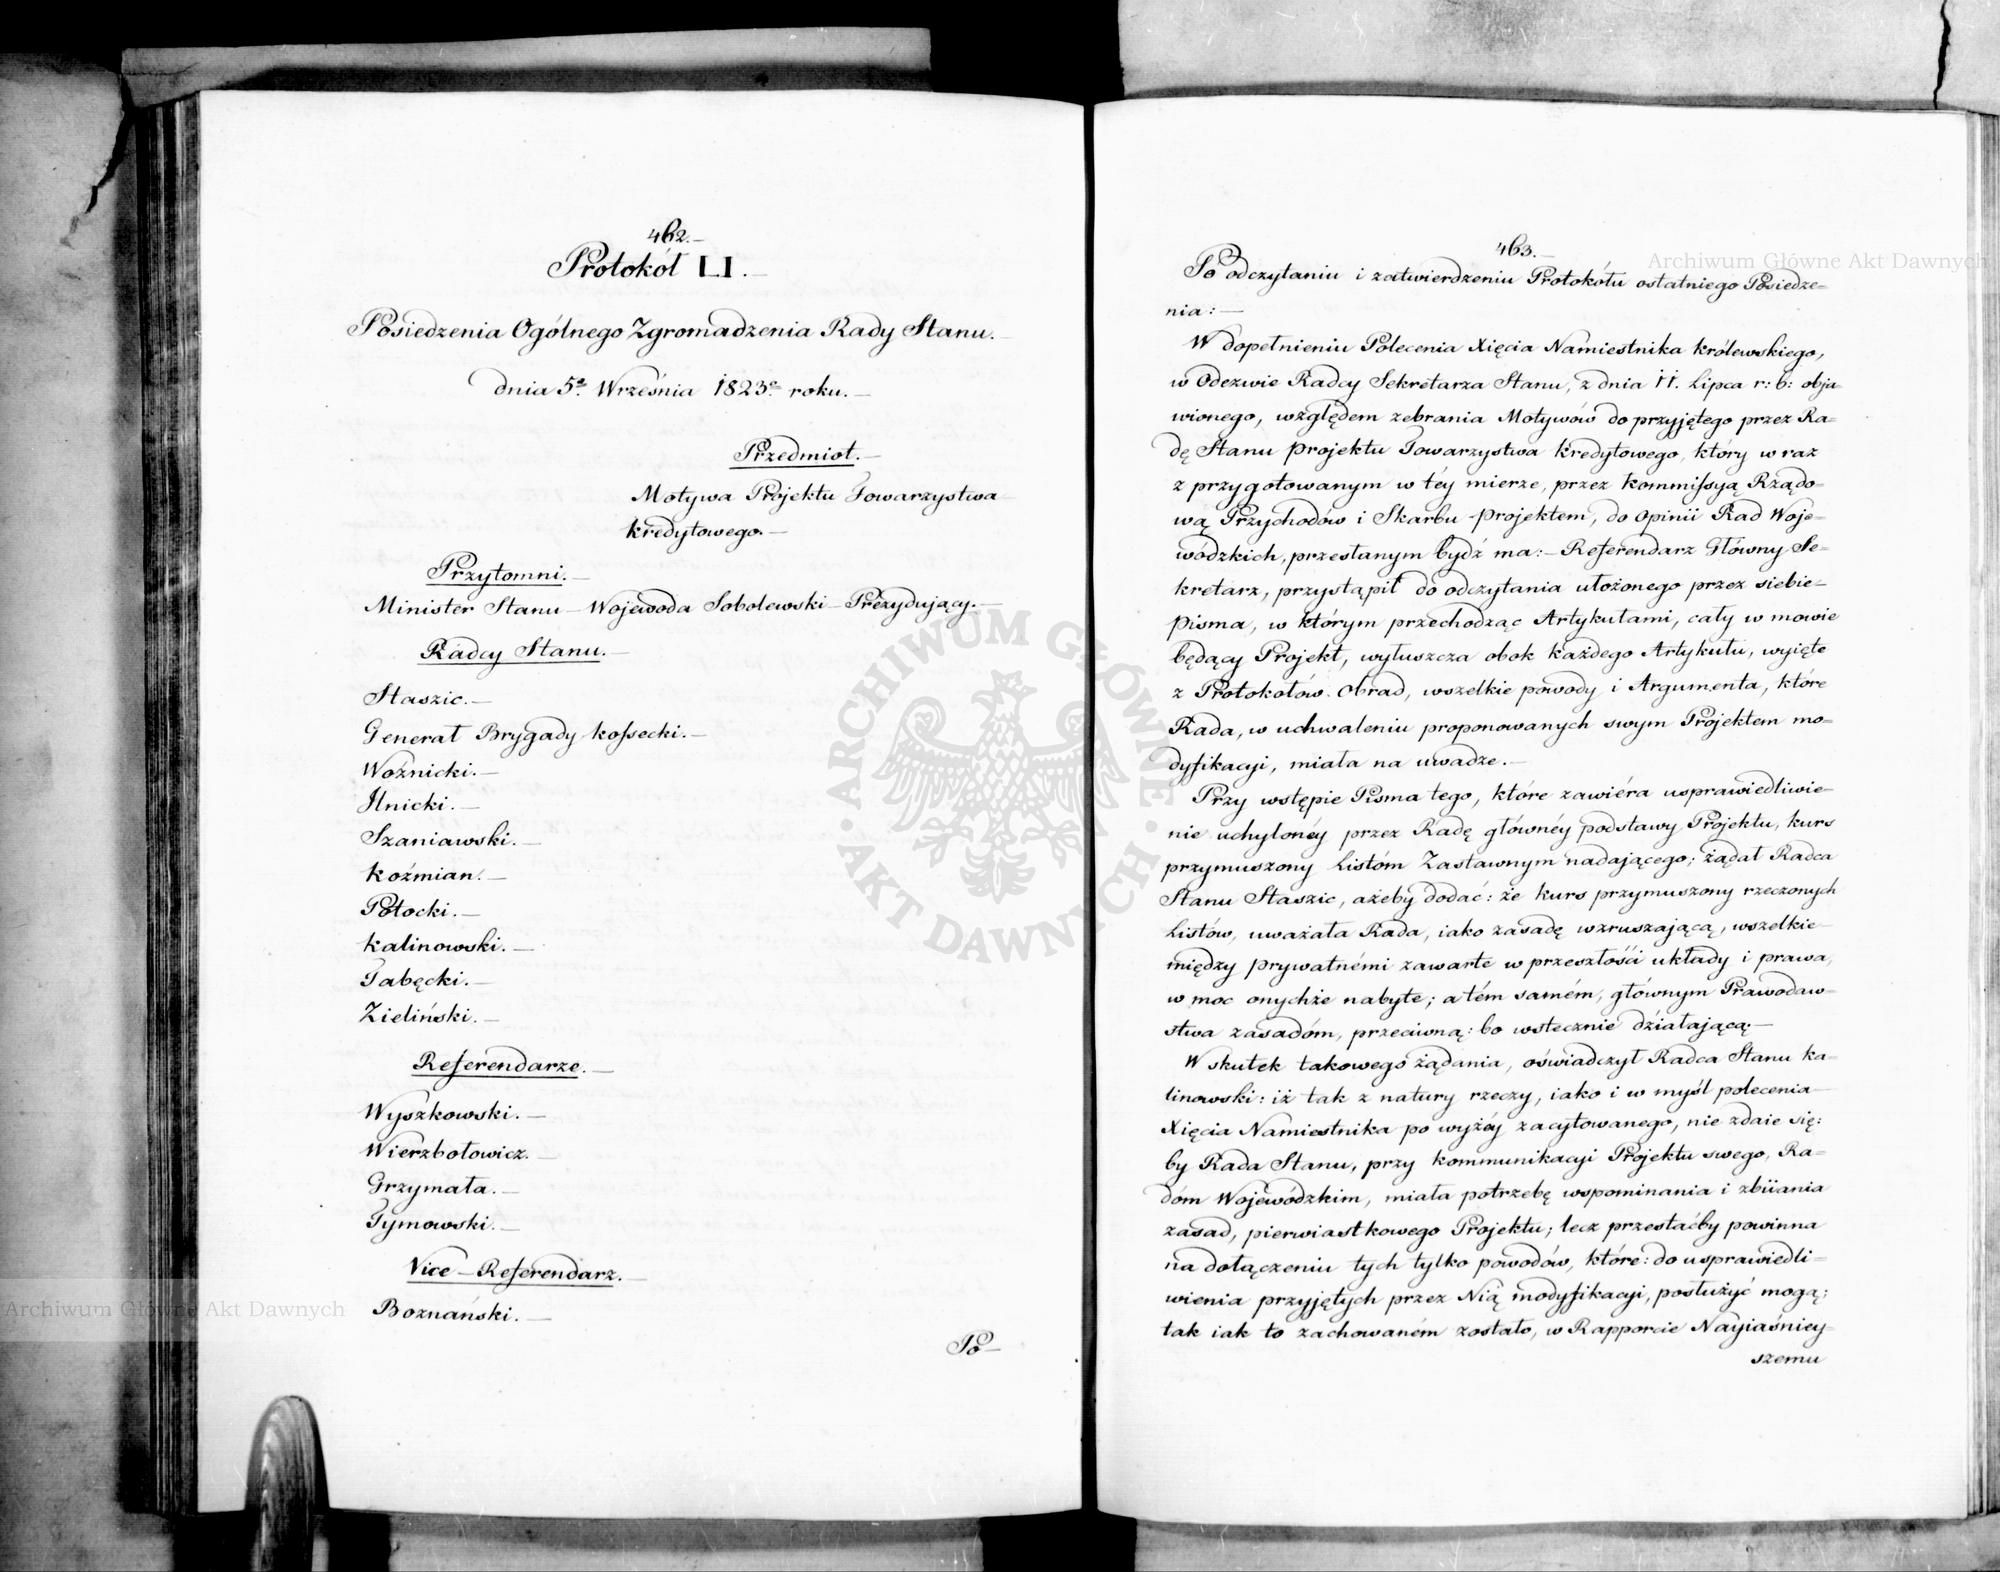 462.
Protokół LI.
Posiedzenia Ogólnego Zgromadzenia Rady Stanu.
dnia 5º Września 1823º roku.
Przedmiot.
Motywa Projektu Towarzystwa
kredytowego.
Przytomni.
Minister Stanu – Wojewoda Sobolewski – Prezydujący.
Radcy Stanu.
Staszic.
Generał Brygady Kossecki.
Woźnicki.
Ilnicki.
Szaniawski.
Koźmian.
Potocki.
Kalinowski.
Tabęcki.
Zieliński.
Referendarze.
Wyszkowski.
Wierzbołowicz.
Grzymała.
Tymowski.
Vice – Referendarz.
Boznański.
Po
463.
Po odczytaniu i zatwierdzeniu Protokółu ostatniego Posiedze=
nia:
W dopełnieniu Polecenia Xięcia Namiestnika królewskiego,
w Odezwie Radcy Sekretarza Stanu, z dnia 11. Lipca r: b: obja=
wionego, względem zebrania Motywów do przyjętego przez Ra=
dę Stanu Projektu Towarzystwa kredytowego, który wraz
z przygotowanym w téy mierze, przez Kommissyą Rządo=
wą Przychodów i Skarbu Projektem, do Opinii Rad Woje=
wódzkich, przesłanym bydź ma: – Referendarz Główny Se=
kretarz, przystąpił do odczytania ułożonego przez siebie
Pisma, w którym przechodząc Artykułami, cały w mowie
będący Projekt, wyłuszcza obok każdego Artykułu, wyięte
z Protokołów Obrad, wszelkie powody i Argumenta, które
Rada, w uchwaleniu proponowanych swym Projektem mo=
dyfikacyi, miała na uwadze.
Przy wstępie Pisma tego, które zawiéra usprawiedliwie=
nie uchylonéy przez Radę głównéy podstawy Projektu, kurs
przymuszony Listóm Zastawnym nadającego; żądał Radca
Stanu Staszic, ażeby dodać: że kurs przymuszony rzeczonych
Listów, uważała Rada, iako zasadę wzruszającą, wszelkie
między prywatnémi zawarte w przeszłości układy i prawa,
w moc onychże nabyte; a tém samém, głównym Prawodaw=
stwa zasadóm, przeciwną: bo wstecznie działającą.
W skutek takowego żądania, oświadczył Radca Stanu Ka=
linowski: iż tak z natury rzeczy, iako i w myśl polecenia
Xięcia Namiestnika po wyżéy zacytowanego, nie zdaie się:
by Rada Stanu, przy kommunikacyi Projektu swego, Ra=
dóm Wojewódzkim, miała potrzebę wspominania i zbiiania
zasad, pierwiastkowego Projektu; lecz przestaćby powinna
na dołączeniu tych tylko powodów, które: do usprawiedli=
wienia przyjętych przez Nią modyfikacyi, posłużyć mogą;
tak iak to zachowaném zostało, w Rapporcie Nayiaśniey=
szemu
Archiwum Główne Akt Dawnych
Archiwum Główne Akt Dawnych
ARCHIWUM GŁÓWNE · AKT DAWNYCH ·